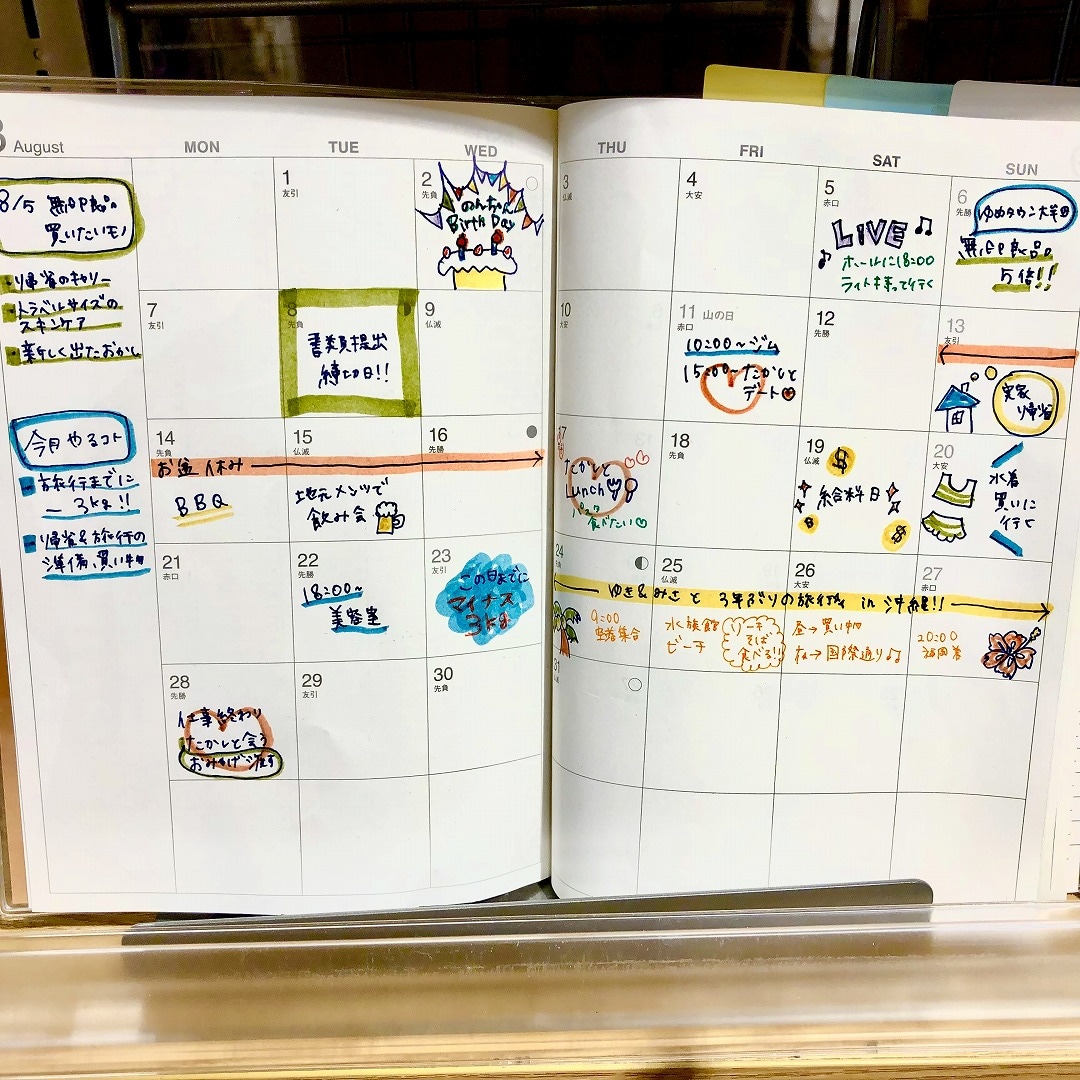 8 August
MON
TUE
WED
THU
FRI
SAT
SUN
8/5 無印良品
買いたいモノ
・帰省のキャリー
・トラベルサイズの
スキンケア
・新しく出たおかし
今月やるコト
旅行までに
－3kg!!
帰省&旅行の
準備、買い物
1
友引
2
先負
のんちゃん
Birth Day
3
仏滅
4
大安
5
赤口
LIVE
ホールに18:00
ライト持って行く
6
先勝
ゆめタウン大牟田
無印良品
5倍!!
7
友引
8
先負
書類提出
締切日!!
9
仏滅
10
大安
11 山の日
赤口
10:00～ジム
15:00～たかしと
デート
12
先勝
13
友引
実家
帰省
14
先負
お盆休み
BBQ
15
仏滅
地元メンツで
飲み会
16
先勝
17
たかしと
Lunch
食べたい
18
先負
19
仏滅
給料日
20
大安
水着
買いに
行く
21
赤口
22
先勝
18:00～
美容室
23
友引
この日までに
マイナス
3kg
24
先負
ゆき&みさと 3年ぶりの旅行 in 沖縄!!
9:00
空港集合
25
仏滅
水族館
ビーチ
ソーキ
そば
食べる!!
26
大安
昼→買い物
夜→国際通り♫
27
赤口
20:00
福岡着
28
先勝
仕事終わり
たかしと会う
おみやげ渡す
29
友引
30
先負
31
仏滅